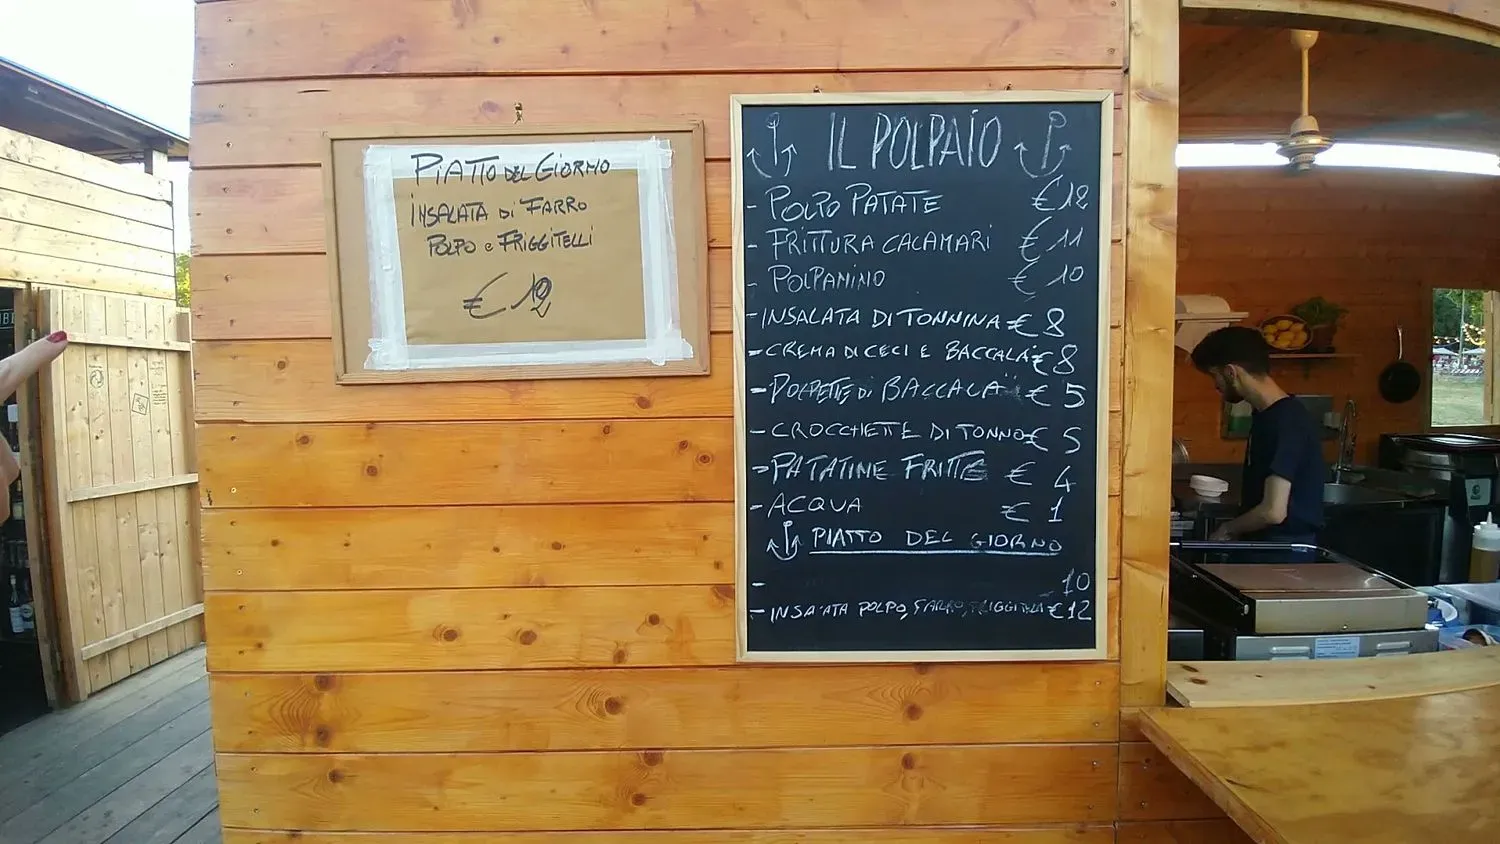 PIATTO DEL GIORNO
INSALATA DI FARRO
POLPO e FRIGGITELLI
€ 12
IL POLPAIO
- POLPO PATATE € 12
- FRITTURA CALAMARI € 11
- POLPANINO € 10
- INSALATA DI TONNINA € 8
- CREMA DI CECI E BACCALA' € 8
- POLPETTE DI BACCALA' € 5
- CROCCHETTE DI TONNO € 5
- PATATINE FRITTE € 4
- ACQUA € 1
PIATTO DEL GIORNO
- 10
- INSALATA POLPO, FARRO, FRIGGITELLI € 12